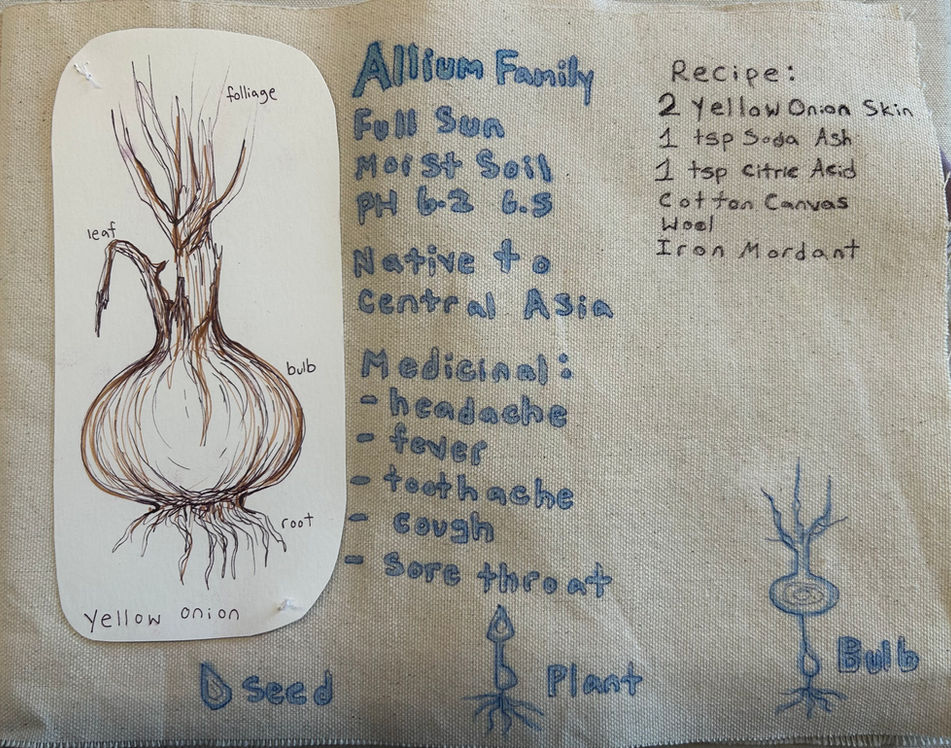 folliage
leaf
bulb
root
yellow onion
Allium Family
Full Sun
Moist Soil
pH 6.2 6.5
Native to
Central Asia
Medicinal:
- headache
- fever
- toothache
- cough
- Sore throat
Recipe:
2 Yellow Onion Skin
1 tsp Soda Ash
1 tsp Citric Acid
Cotton Canvas
Wool
Iron Mordant
Seed
Plant
Bulb